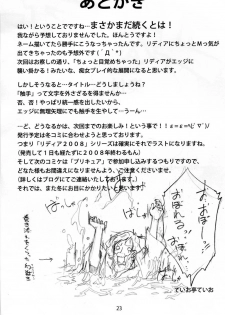 あとがき
はい！ということでですね・・・まさかまだ続くとは！
我ながら予想外でした。ほんとうですよ
ネーム描いてたら勝手にこうなっちゃったんです。リディアにちょっとＭっ気が
出てきちゃったのも予想外です（´Д｀*）
次回はお察しの通り、「ちょっと目覚めちゃった」リディアがエッジに
襲い掛かる！みたいな、痴女プレイ的な内容になるかもです。
・・・となると・・・タイトル・・・どうしましょうね？
「触手」って文字を外さざるを得ませんね・・・
否、否！やっぱり統一感を出したいから、
エッジに無理矢理にでも触手を生やして・・・うーん・・・
・・・と、どうなるかは、次回までのお楽しみ！という事で！！
発行予定は冬コミに合わせたいと思っております！
つまり「リディア２００８」シリーズは確実にそれでラストになりますね
（発売して１日も経たずに２００８年終わるもん）
そして次のコミケは「プリキュア」で参加申し込みするつもりですので、
どなた様もお間違えになりませんよう、ご注意くださいませ。
（詳しくはブログにてご連絡いたしております）
それでは、また冬にお目にかかれたらと思います！
おぼれる！！
おぼれるっ！
23
ていお亭ていお